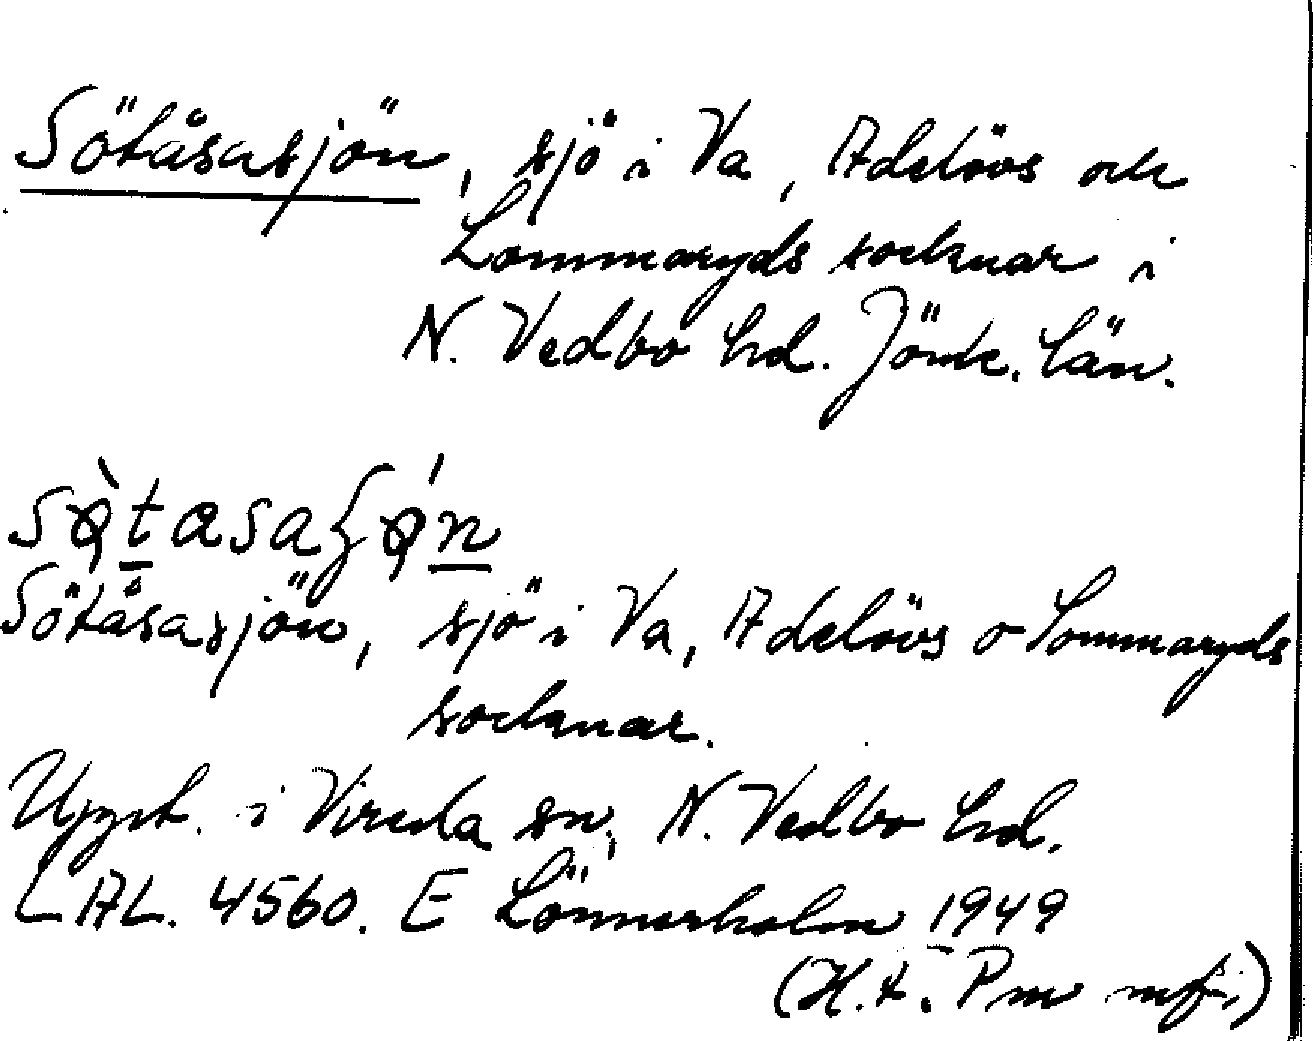 Sötåsasjön, sjö i Va, Adelövs och
Lommaryds socknar i
N. Vedbo hd. Jönk. län.
Sötåsasjön, sjö i Va, Adelövs o Lommaryds
socknar.
Uppt. i Vireda sn, N. Vedbo hd.
LAL. 4560. E Lönnerholm 1949